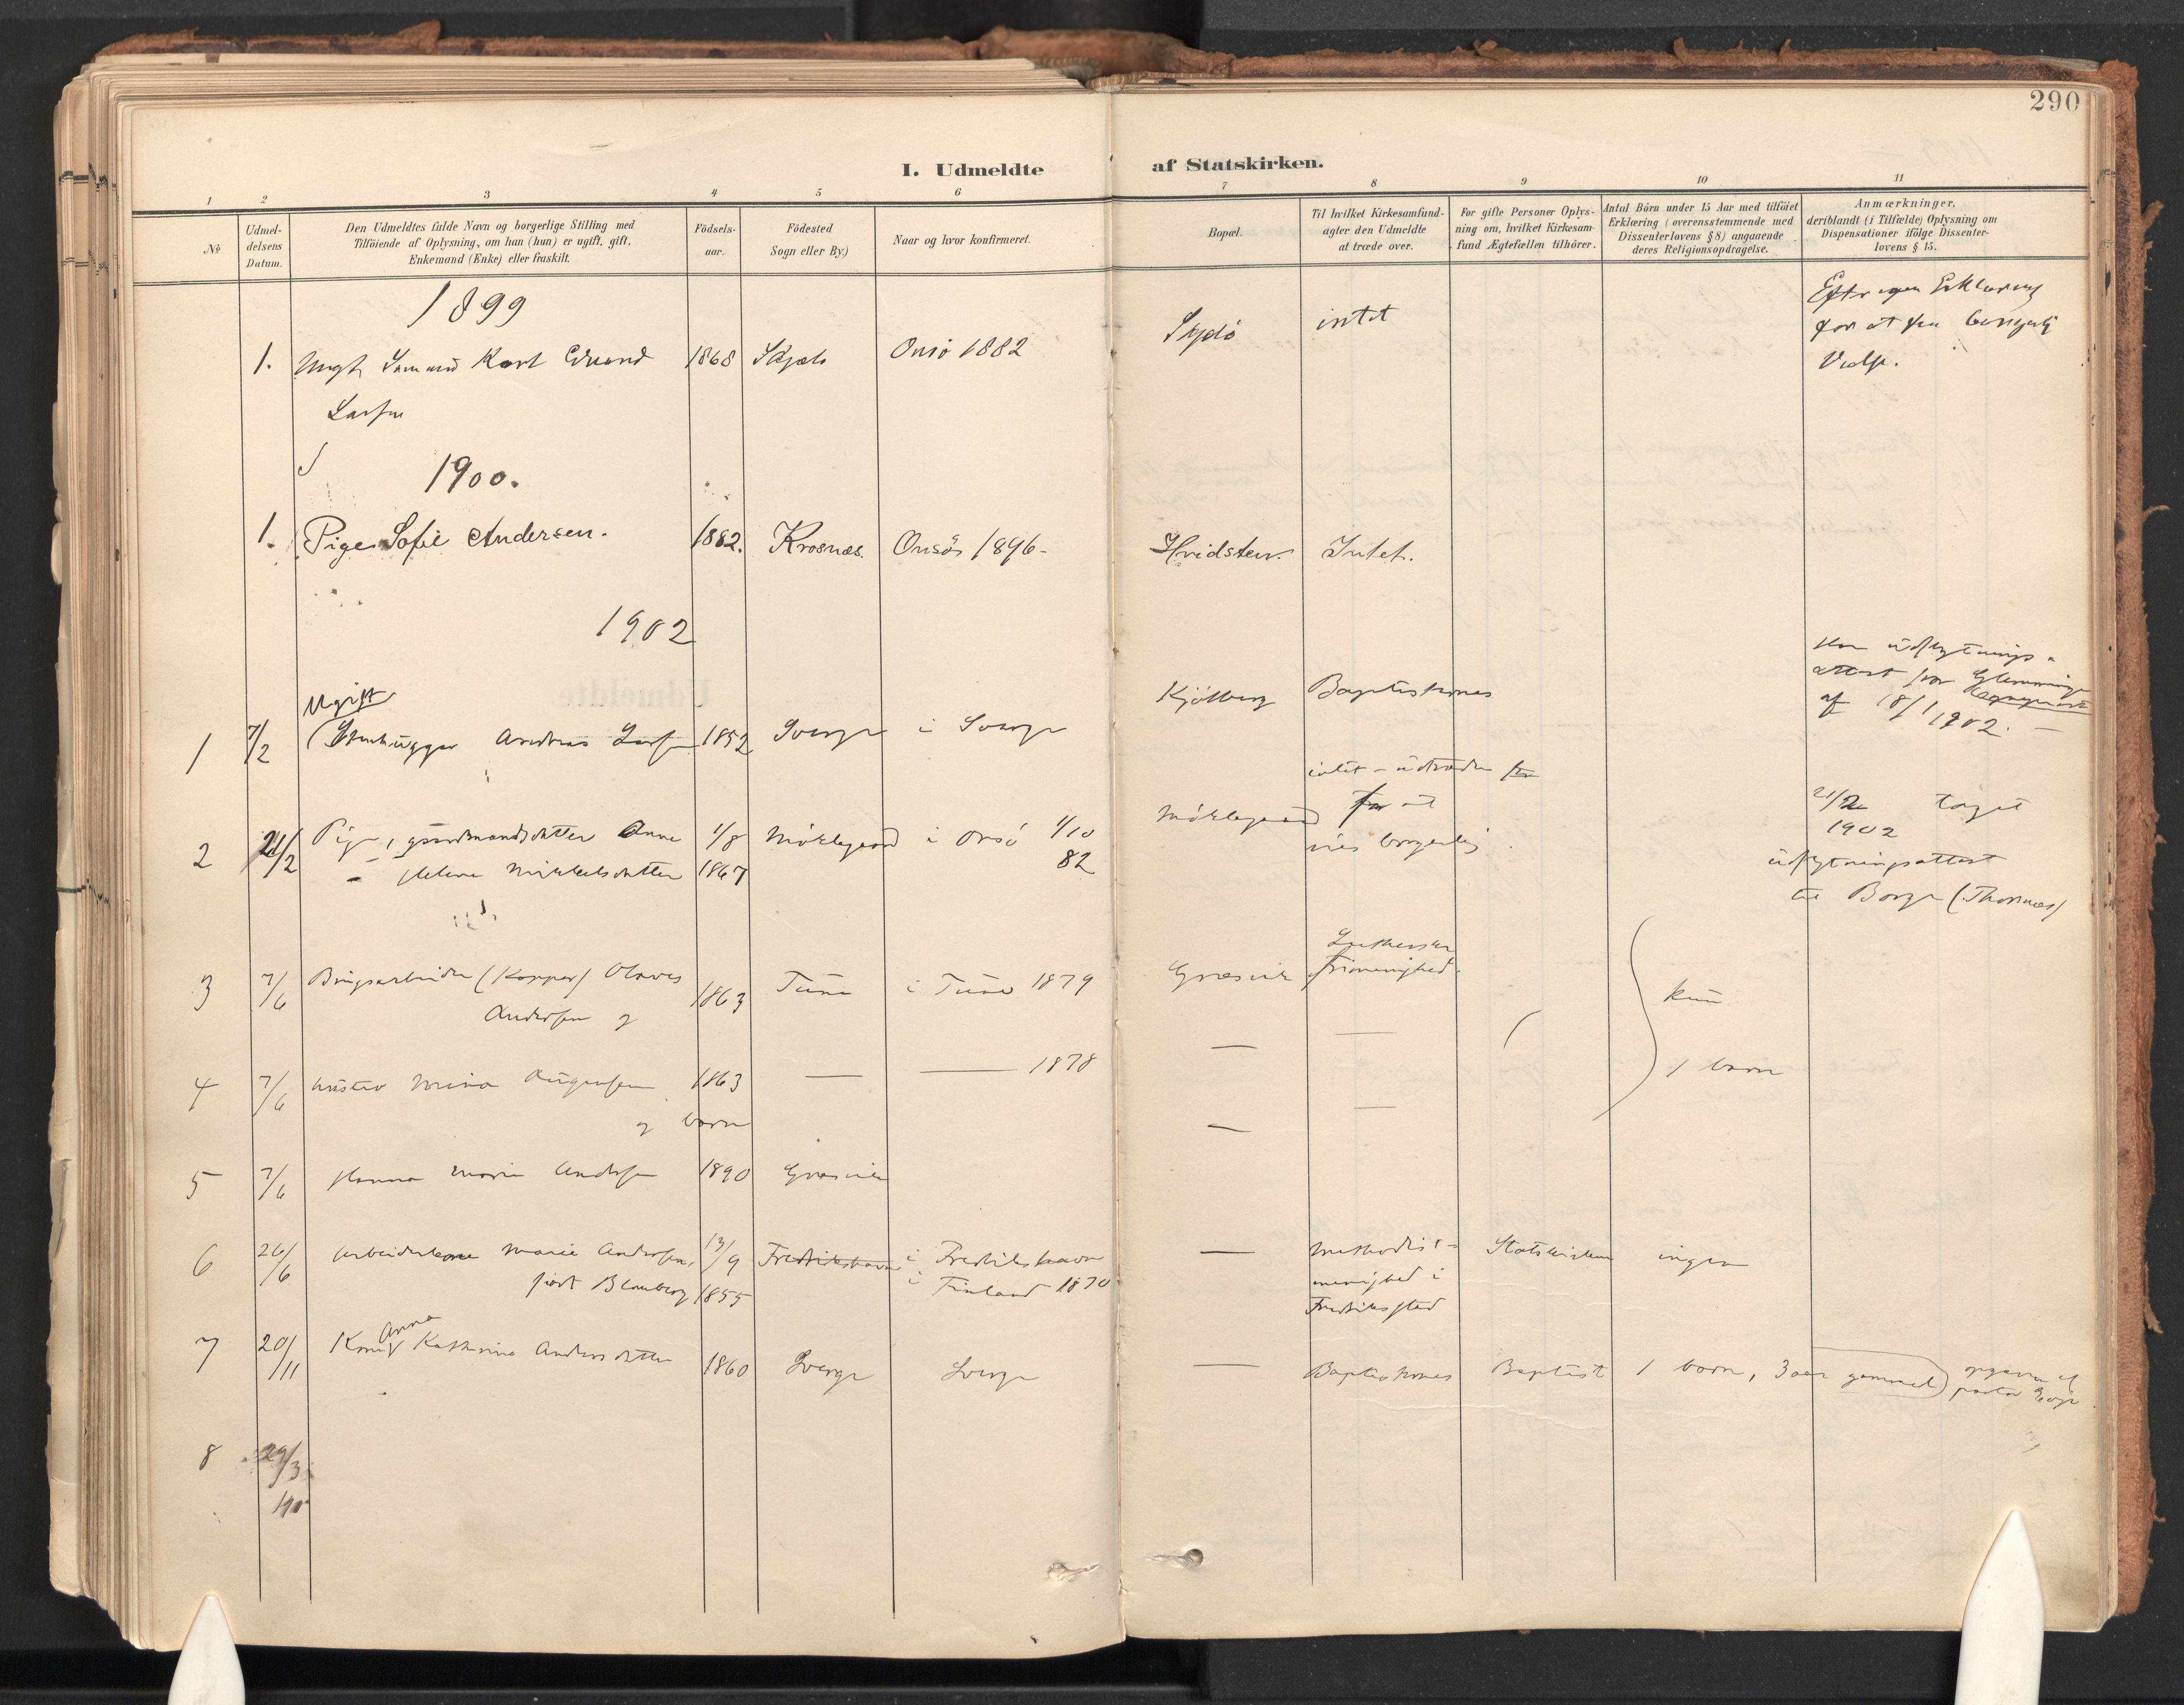 290
I. Udmeldte af Statskirken.
1 2 3 4 5 6 7 8 9 10 11
No
Udmel-
delsens
Datum.
Den Udmeldtes fulde Navn og borgerlige Stilling med
Tilföiende af Oplysning, om han (hun) er ugift, gift,
Enkemand (Enke) eller fraskilt.
Födsels-
aar.
Födested
Sogn eller By.)
Naar og hvor konfirmeret.
Bopæl.
Til hvilket Kirkesamfund-
agter den Udmeldte
at træde over.
For gifte Personer Oplys-
ning om, hvilket Kirkesam-
fund Ægtefællen tilhörer.
Antal Börn under 15 Aar med tilföiet
Erklæring (overensstemmende med
Dissenterlovens § 8) angaaende
deres Religionsopdragelse.
Anmærkninger,
deriblandt (i Tilfælde) Oplysning om
Dispensationer ifölge Dissenter-
lovens § 15.
1899
1. Ungk. Sömand Karl Edvard 1868 Onsö 1882 intet
Larsen
Efter egen Erklæring
for at faa borgerlig
Vielse.
1900.
1. Pige Sofie Andersen. 1882. Krosnæs. Onsö 1896- Hvidsten. Intet.
1902
Ugift
1 7/2 Stenhugger Andreas Larsen 1852 Sverge i Sverge Kjölberg Baptisternes
udflytnings-
attest fra Glemminge
af 18/1 1902. -
2 21/2 Pige, gaardmandsdatter Anne 1/8 Möklegaard i Onsö 1/10 Möklegaard
- Helene Mikkelsdatter 1867 82
intet - udtræder
for at
vies borgerlig
21/2 taget
1902
udflytningsattest
til Borge (Thorsnæs)
3 7/6 Brugsarbeider Olaves 1863 Tune i Tune 1879 Græsvik
Andersen og
Luthersk
Frimenighed.
kun
1 barn
4 7/6 hustru Mina Augensen 1863 — — 1878 — —
og barn — —
5 7/6 Hanna Marie Andersen 1890 Græsvik
6 26/6 Marie Andersen, 13/9 Fredrikshavn i Fredrikshavn — Methodist- Statskirken ingen
født Blomberg 1855 i Finland 1870
menighed i
Fredriksstad
Anna
7 20/11 Kone Katherine Andersdatter 1860 Sverge Sverge — Baptisternes Baptist 1 barn, 3 aar gammel)
8 29/3
190